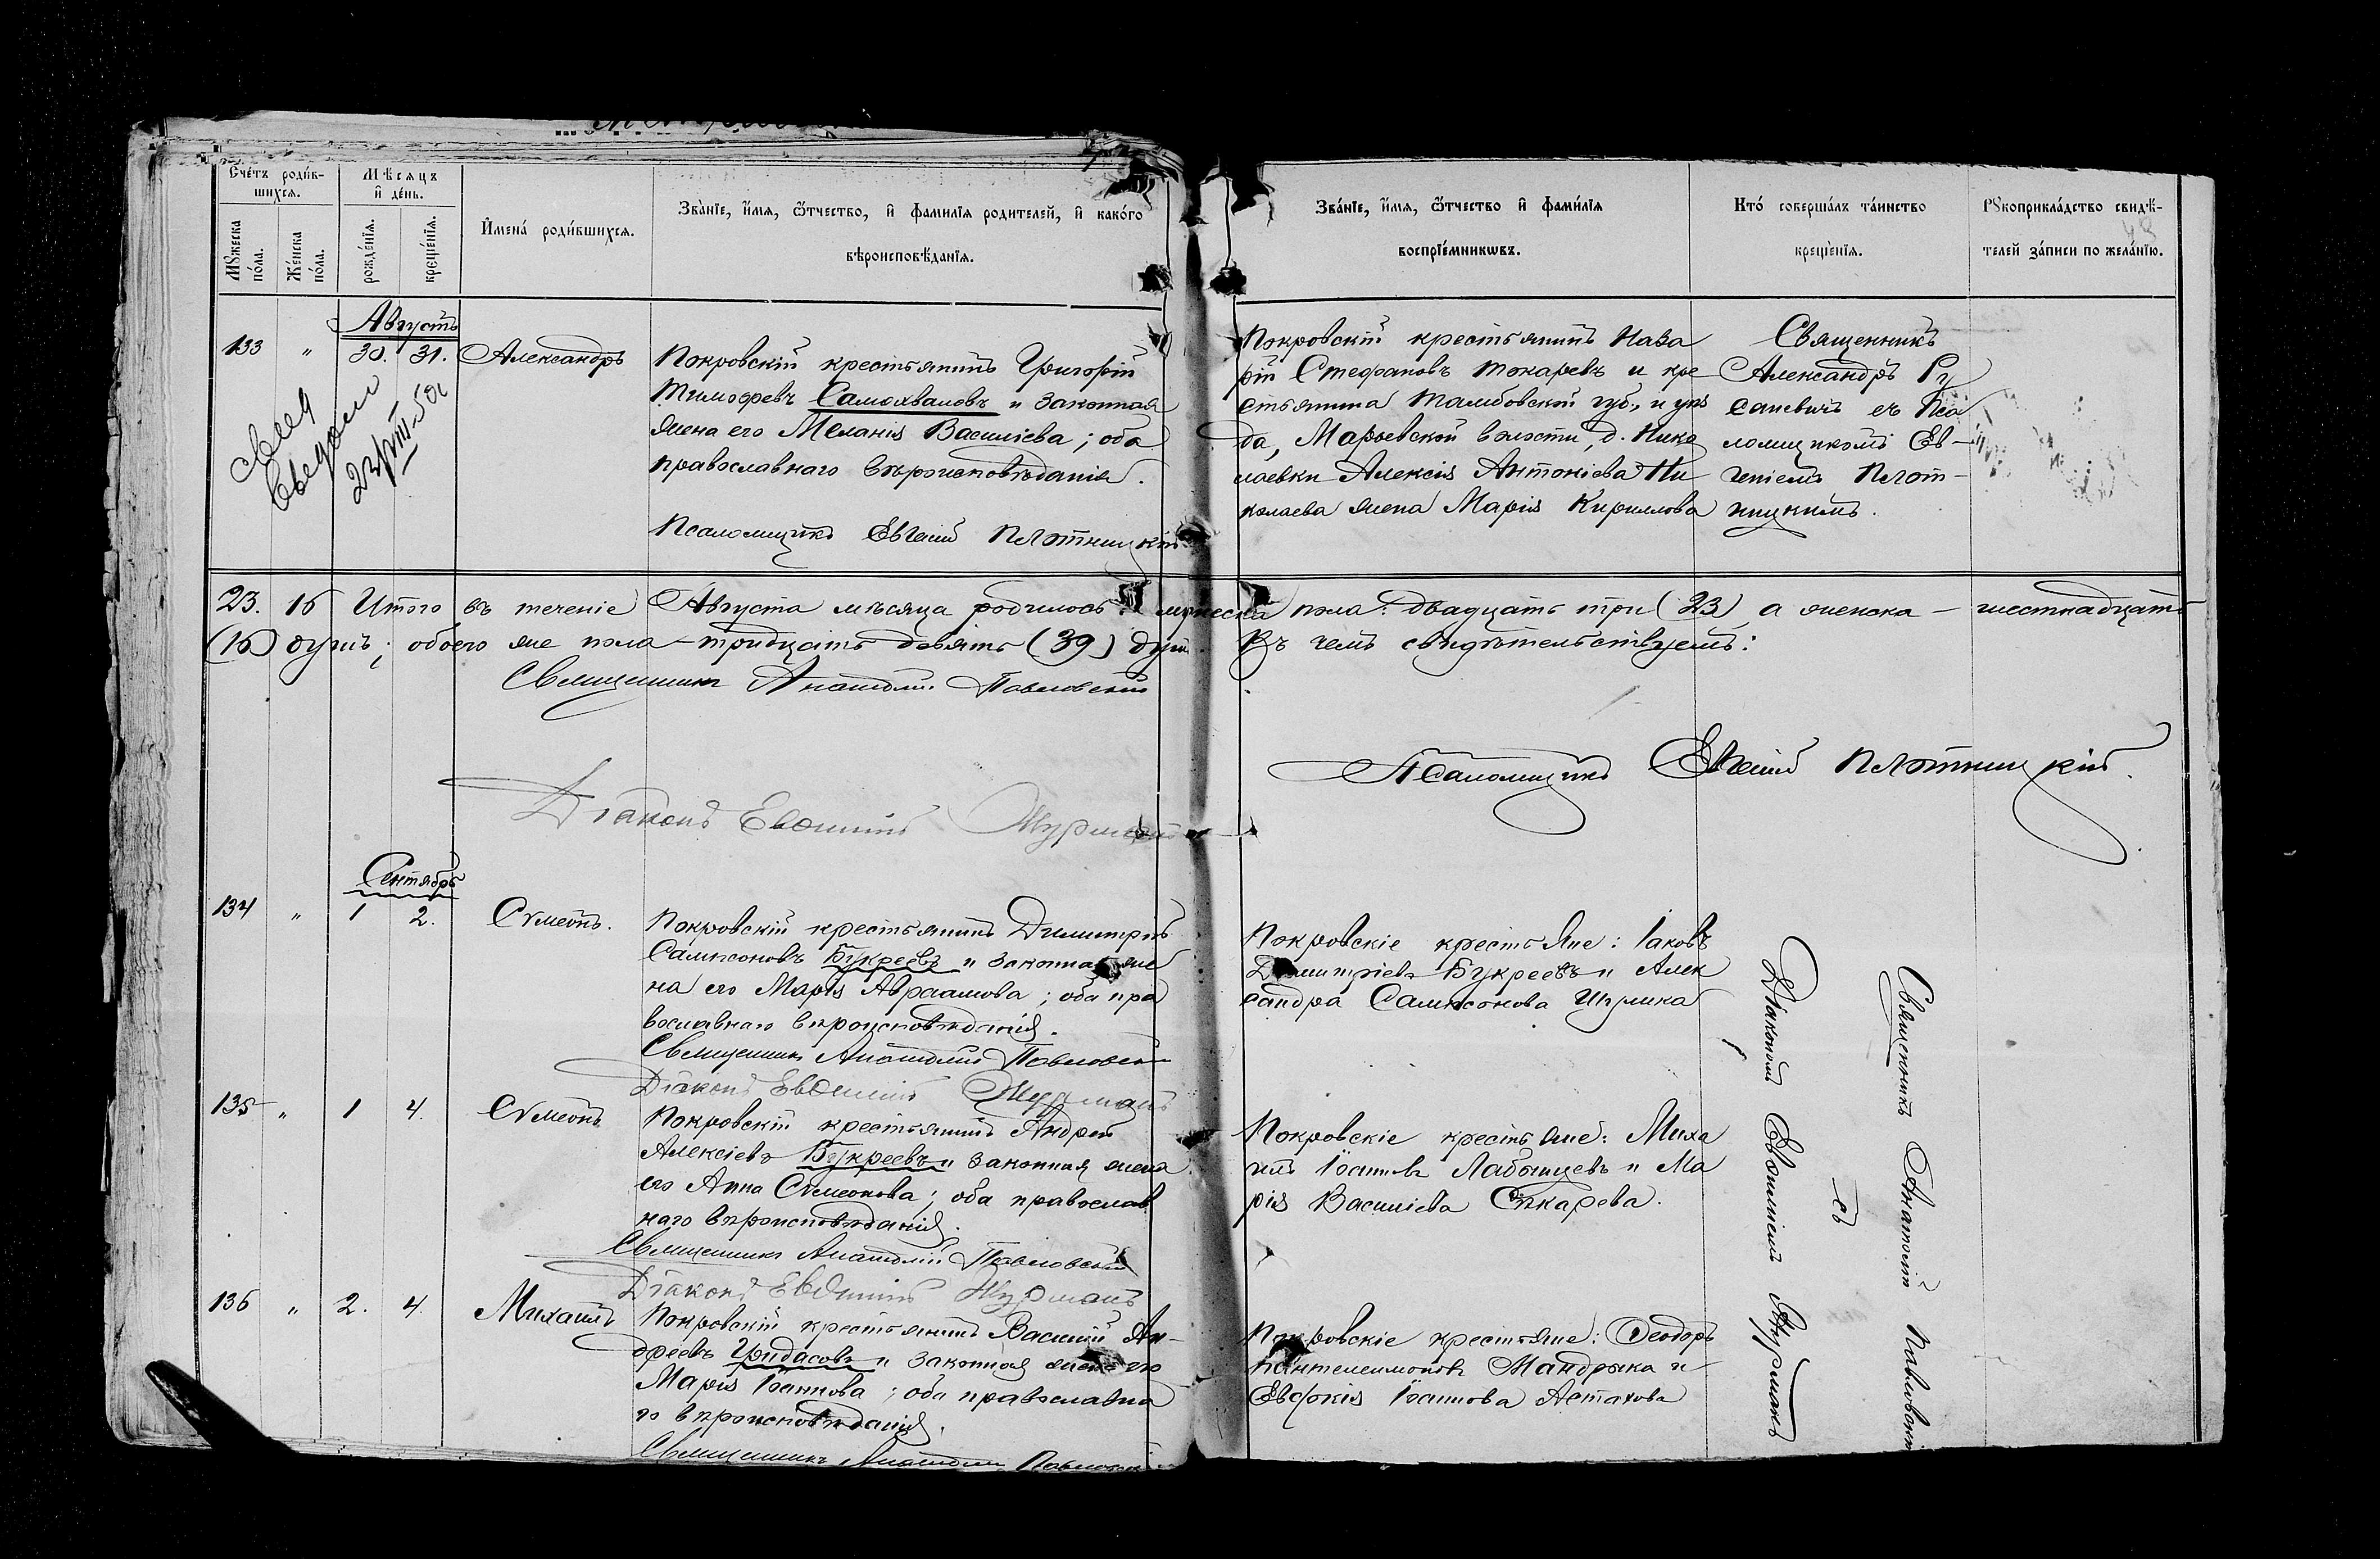 Счетъ родив-
шихся.
Мѣсяцъ
и день.
Мужеска
пола.
Женска
пола.
рожденія.
крещенія.
Имена родившихся.
Званіе, имя, отчество, и фамилія родителей, и какого
вѣроисповѣданія.
Званіе, имя, отчество и фамилія
воспріемниковъ.
Кто совершалъ таинство
крещенія.
Рукоприкладство свидѣ-
телей записи по желанію.
Августъ
133 " 30. 31. Александръ
Покровскій крестьянинъ Григорій
Тимофевъ Самохваловъ и законная
жена его Меланія Василіева; оба
православнаго вѣроисповѣданія.
Псаломщикъ Евгеній Плотницкій
Покровскій крестьянинъ Наза
рій Стефановъ Токаревъ и кре
стьянина Тамбовской губ., и уѣз
да, Марьевской волости, д. Нико
лаевки Алексія Антоніева Ни
колаева жена Марія Кириллова
Священникъ
Александръ Ру
саневичъ съ Пса
ломщикомъ Ев-
геніемъ Плот-
ницкимъ.
23. 16 Итого въ теченіе Августа мѣсяца родилось: мужеска пола: двадцать три (23) а женска – шестнадцать
(16) душъ; обоего же пола – тридцать девять (39) душ. Въ чемъ свидѣтельствуемъ:
Священникъ Анатолій Павловскій
Псаломщикъ Евгеній Плотницкій.
Діаконъ Евѳимій Журманъ
Сентябрь
134 " 1 2. Сѵмеонъ.
Покровскій крестьянинъ Димитрій
Сампсоновъ Букреевъ и законная же
на его Марія Авраамова; оба пра
вославнаго вѣроисповѣданія.
Священникъ Анатолій Павловскій
Діаконъ Евѳимій Журманъ
Покровскіе крестьяне: Іаковъ
Димитріевъ Букреевъ и Алек
сандра Сампсонова
135 " 1 4. Сѵмеонъ
Покровскій крестьянинъ Андрей
Алексіевъ Букреевъ и законная жена
его Анна Сѵмеонова; оба православ
наго вѣроисповѣданія.
Священникъ Анатолій Павловскій
Діаконъ Евѳимій Журманъ
Покровскіе крестьяне: Миха
илъ Іоанновъ Лабынцевъ и Ма
рія Василіева
136 " 2. 4. Михаилъ
Покровскій крестьянинъ Василій Ан-
дреевъ Гридасовъ и законная жена его
Марія Іоаннова; оба православна
го вѣроисповѣданія.
Священникъ Анатолій Павловскій
Покровскіе крестьяне: Ѳеодоръ
Пантелеимоновъ Мандрыка и
Іоаннова Астахова
Священникъ Анатолій Павловскій
съ
Діакономъ Евѳиміемъ Журманъ